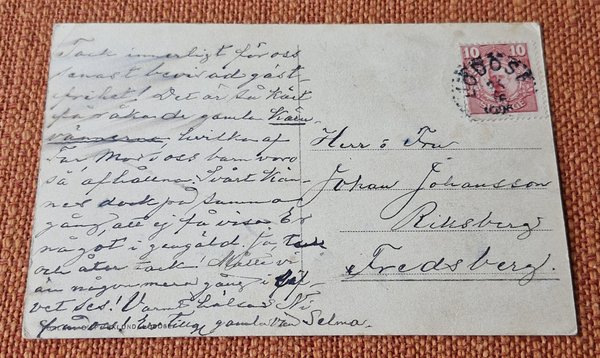 Tack innerligt för oss
senast bevisad gäst-
frihet! Det är så kärt
få råka de gamla
vännerna, hvilka af
Far, Mor o oss barn voro
så afhållna. Svårt kän-
nes dock på samma
gång, att ej få visa Er
något i gengäld. Ja, tack
och åter tack! Måtte vi
än någon mera gång i lif-
vet ses! Varma hälsn. Ni
från oss. Er tillg. gamla vän Selma.
10 10
LÖDÖSE
Herr o Fru
Johan Johansson
Riksberg
Fredsberg.